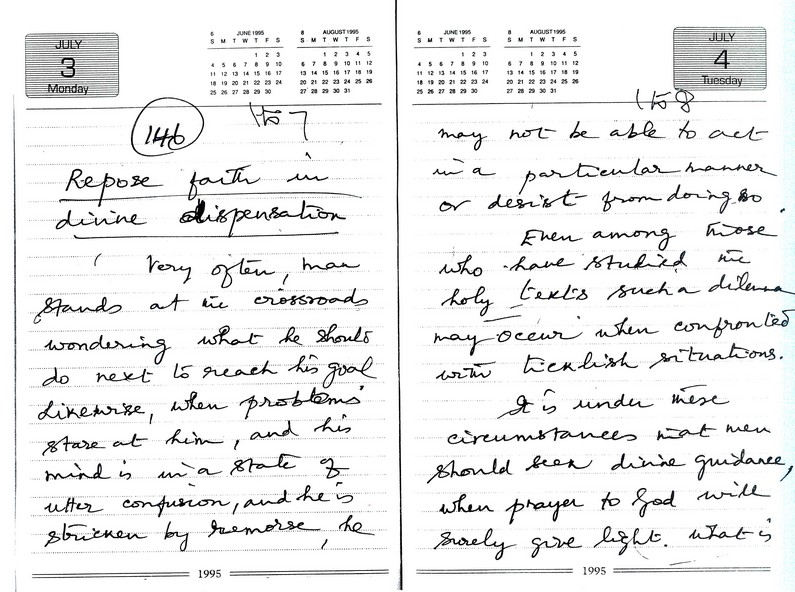 JULY
3
Monday
6 JUNE 1995
S M T W T F S
1 2 3
4 5 6 7 8 9 10
11 12 13 14 15 16 17
18 19 20 21 22 23 24
25 26 27 28 29 30
8 AUGUST 1995
S M T W T F S
1 2 3 4 5
6 7 8 9 10 11 12
13 14 15 16 17 18 19
20 21 22 23 24 25 26
27 28 29 30 31
146
1 to 7
Repose faith in
divine dispensation
Very often, man
stands at the crossroads
wondering what he should
do next to reach his goal
Likewise, when problems
stare at him, and his
mind is in a state of
utter confusion, and he is
stricken by remorse, he
1995
6 JUNE 1995
S M T W T F S
1 2 3
4 5 6 7 8 9 10
11 12 13 14 15 16 17
18 19 20 21 22 23 24
25 26 27 28 29 30
8 AUGUST 1995
S M T W T F S
1 2 3 4 5
6 7 8 9 10 11 12
13 14 15 16 17 18 19
20 21 22 23 24 25 26
27 28 29 30 31
JULY
4
Tuesday
1 to 8
may not be able to act
in a particular manner
or desist from doing so.
Even among those
who have studied the
holy texts such a dilemma
may occur when confronted
with ticklish situations.
It is under these
circumstances that men
should seek divine guidance,
when prayer to God will
surely give light. What is
1995